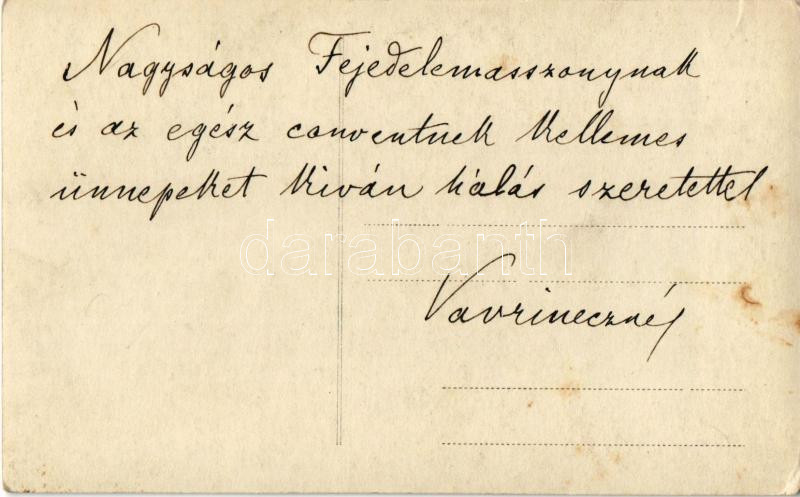 Nagyságos Fejedelemasszonynak
és az egész conventnek kellemes
ünnepeket kiván hálás szeretettel
darabanth
Vavrinecznéj